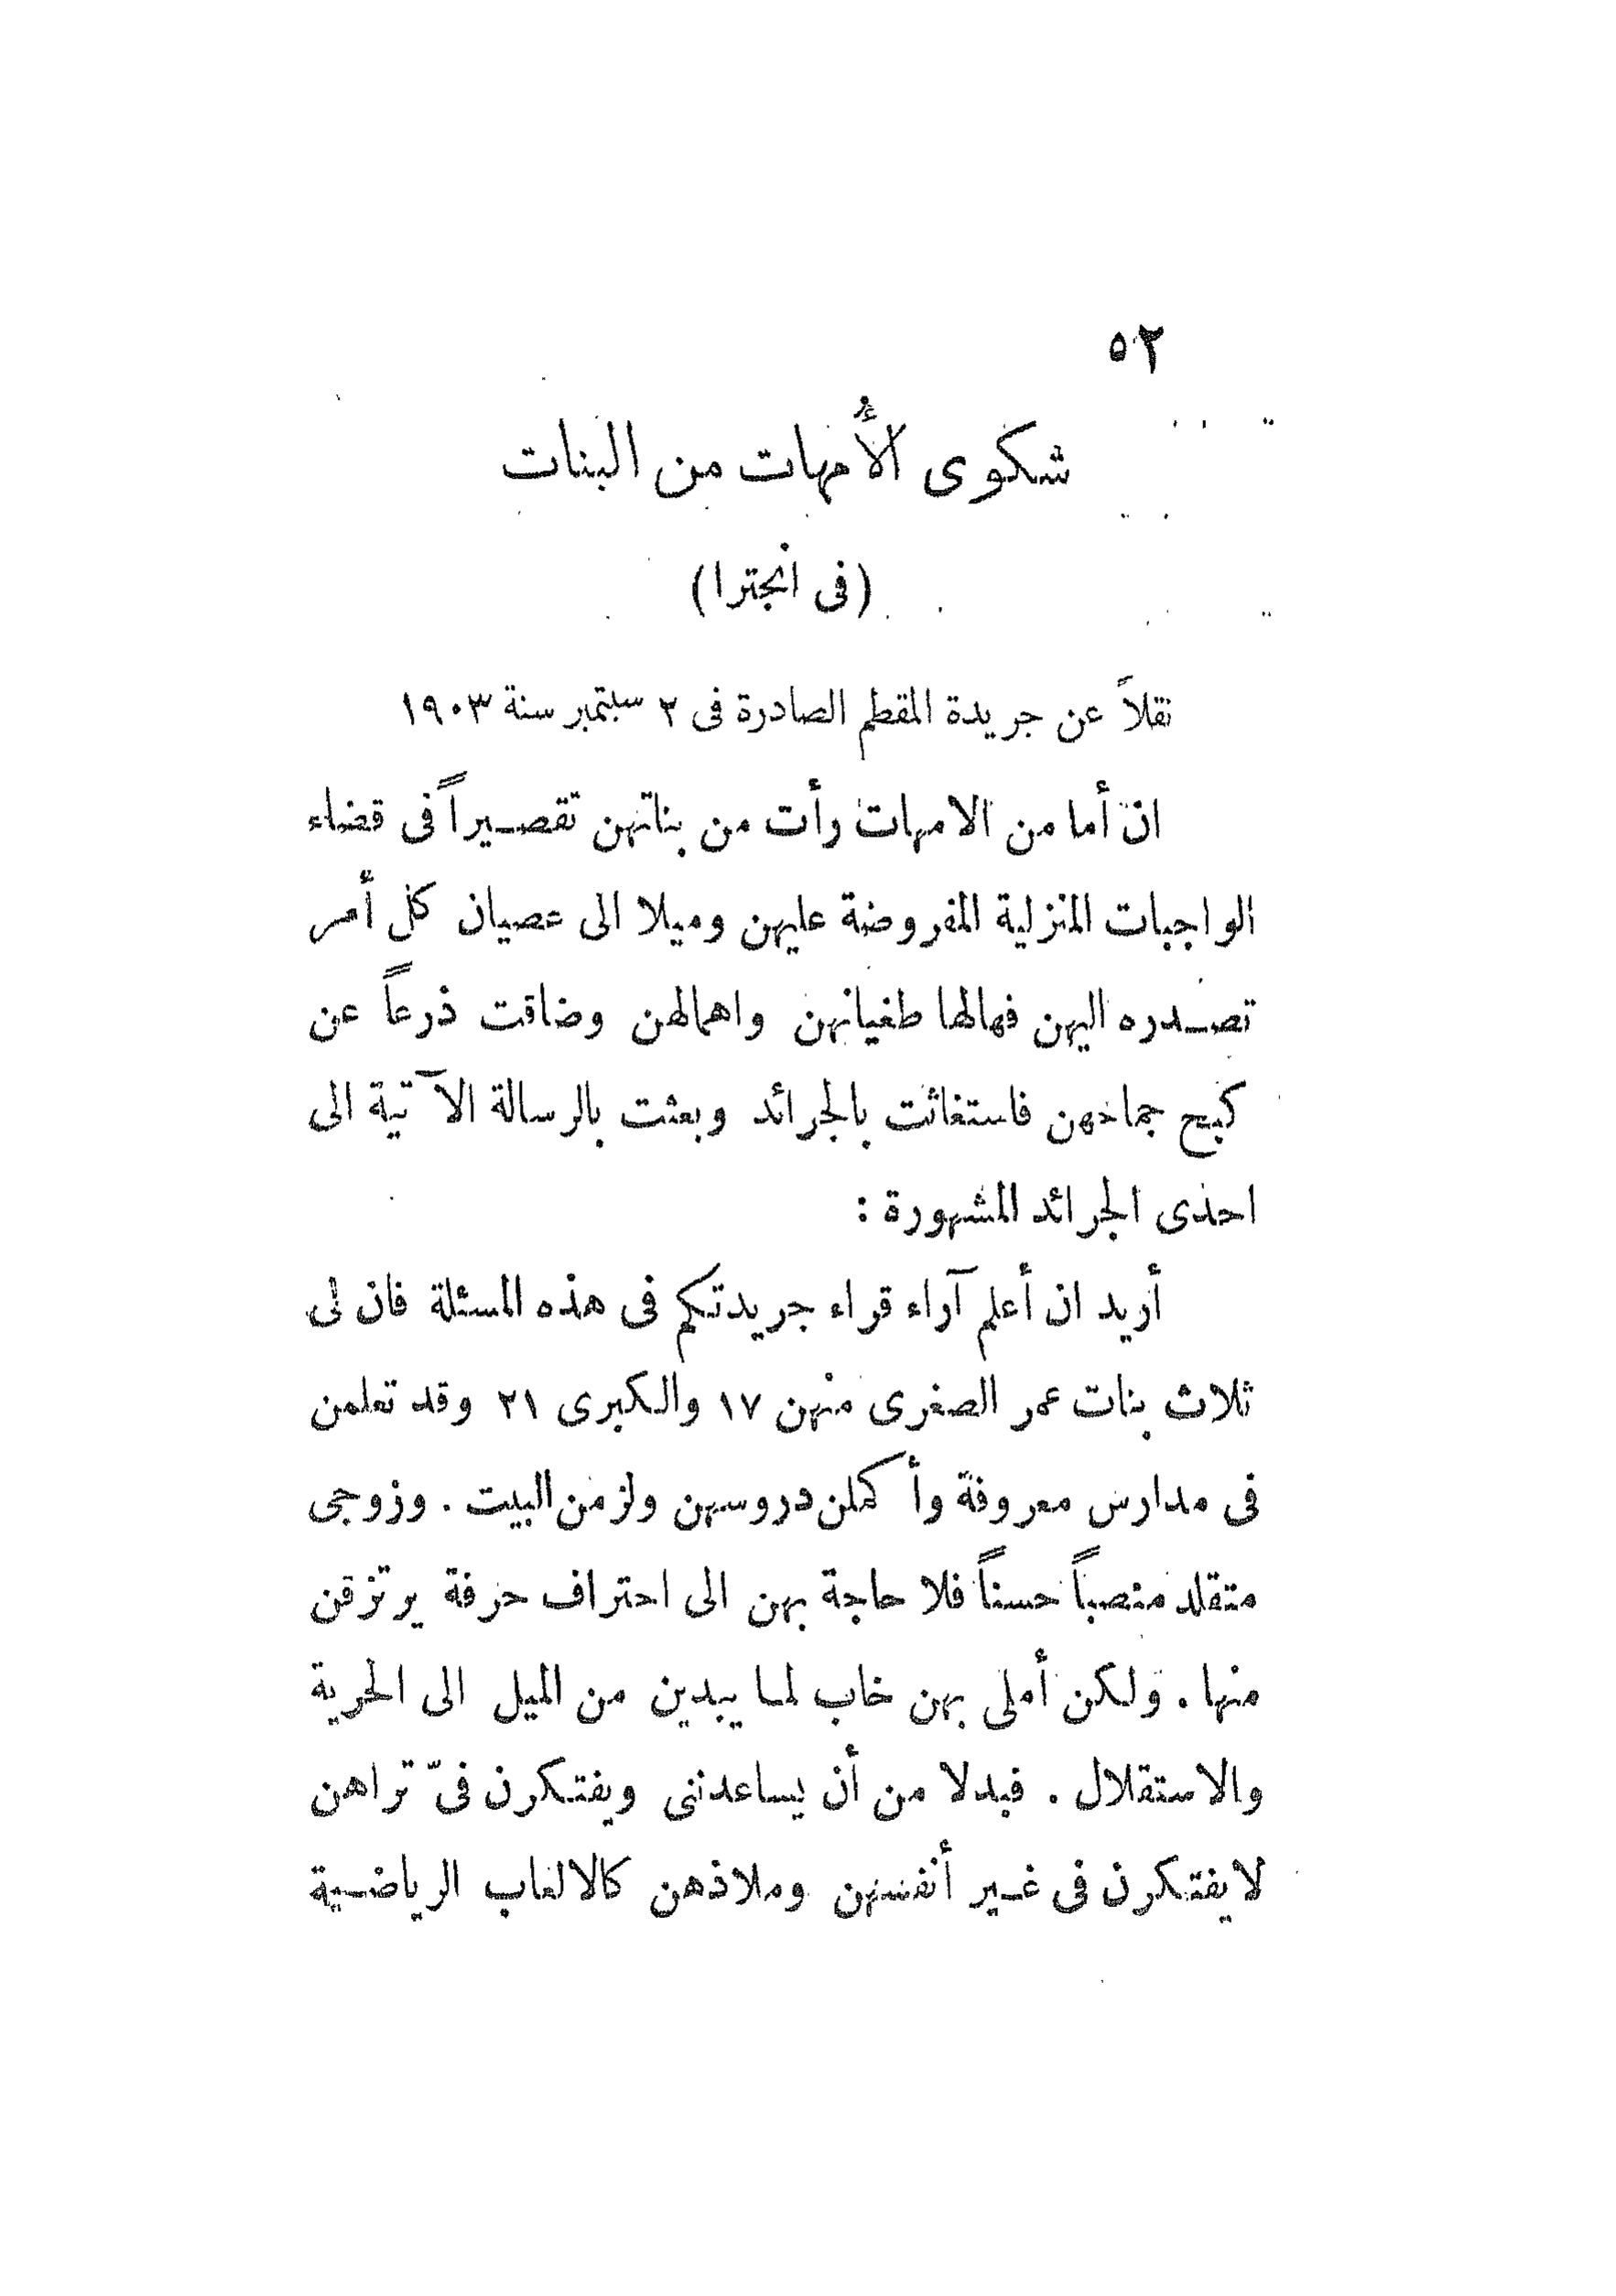 ٥٢
شكوى الأُمهات من البنات
(فى انجترا)
نقلاً عن جريدة المقطم الصادرة فى ٢ سبتمبر سنة ١٩٠٣
ان أما من الامهات رأت من بناتهن تقصيراً فى قضاء
الواجبات المنزلية المفروضة عليهن وميلا الى عصيان كل أمر
تصدره اليهن فهالها طغيانهن واهمالهن وضاقت ذرعاً عن
كبح جماحهن فاستغاثت بالجرائد وبعثت بالرسالة الآتية الى
احدى الجرائد المشهورة :
أريد ان أعلم آراء قراء جريدتكم فى هذه المسئلة فان لى
ثلاث بنات عمر الصغرى منهن ١٧ والكبرى ٢١ وقد تعلمن
فى مدارس معروفة وأكملن دروسهن ولزمن البيت . وزوجى
متقلد منصباً حسناً فلا حاجة بهن الى احتراف حرفة يرتزقن
منها . ولكن أملى بهن خاب لما يبدين من الميل الى الحرية
والاستقلال . فبدلا من أن يساعدننى ويفتكرن فىّ تراهن
لا يفتكرن فى غير أنفسهن وملاذهن كالالعاب الرياضية